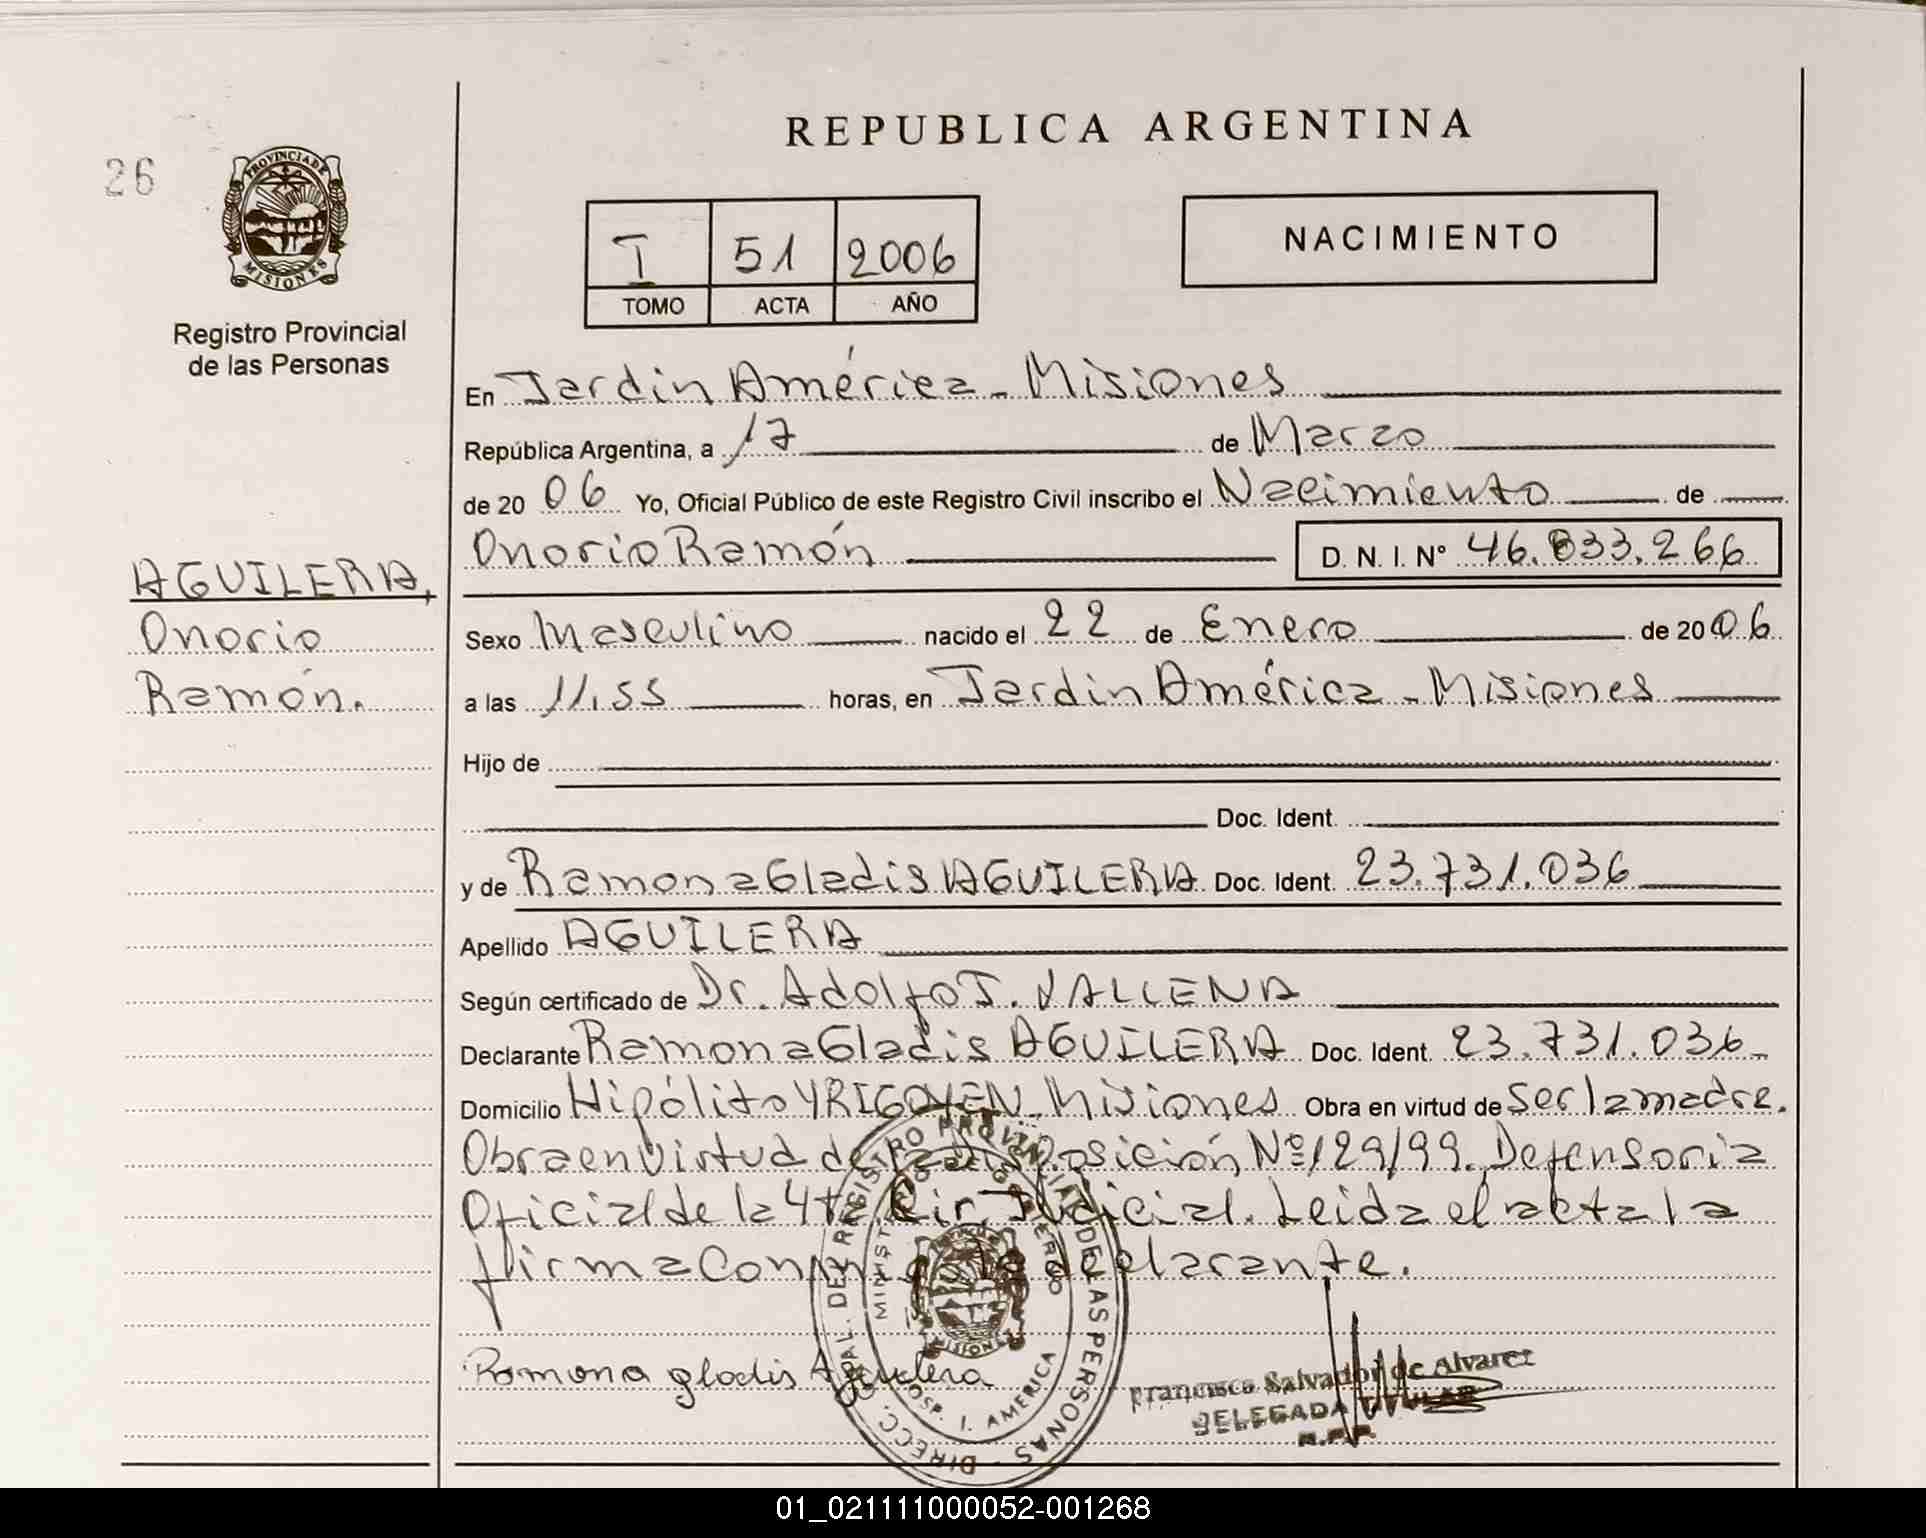 REPUBLICA ARGENTINA
26
PROVINCIA DE
MISIONES
Registro Provincial
de las Personas
I 51 2006
TOMO ACTA AÑO
NACIMIENTO
En Jardin América - Misiones
República Argentina, a 17 de Marzo
de 20 06 Yo, Oficial Público de este Registro Civil inscribo el Nacimiento de
Onorio Ramón D. N. I. Nº 46.833.266
AGUILERA,
Onorio
Ramón.
Sexo Masculino nacido el 22 de Enero de 20 06
a las 11.55 horas, en Jardin América - Misiones
Hijo de
Doc. Ident.
y de Ramona Gladis AGUILERA Doc. Ident. 23.731.036
Apellido AGUILERA
Según certificado de Dr. Adolfo J. VALLENA
Declarante Ramona Gladis AGUILERA Doc. Ident. 23.731.036
Domicilio Hipólito YRIGOYEN - Misiones Obra en virtud de ser la madre.
Obra en Virtud de la disposición Nº 129/99. Defensoria
Oficial de la 4ta. Cir. Judicial. Leida el acta la
firma Conmigo la declarante.
Ramona gladis Aguilera
DIRECC. GRAL. DEL REGISTRO PROVINCIAL DE LAS PERSONAS
HOSP. J. AMERICA
MISIONES
Francisca Salvador de Alvarez
DELEGADA TITULAR
R.P.P.
01_021111000052-001268